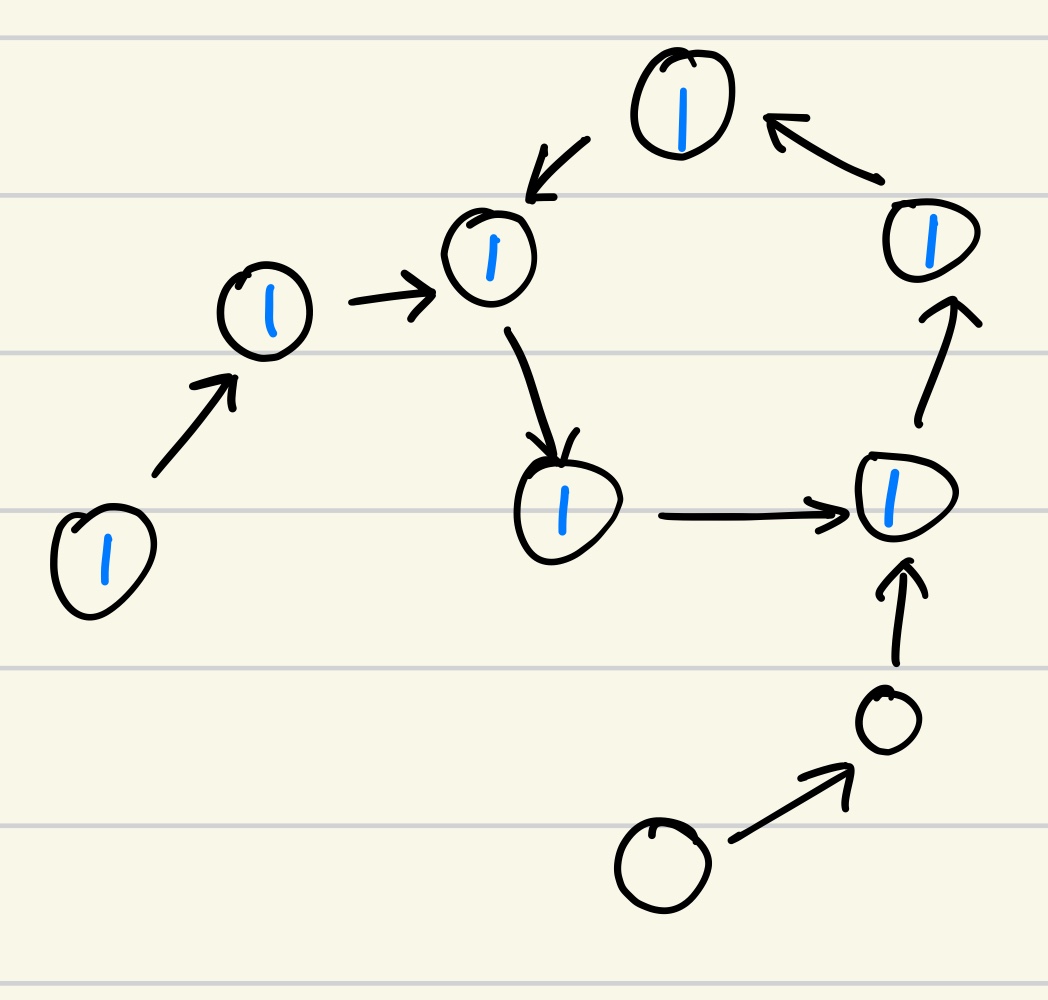 1
1
1
1
1
1
1